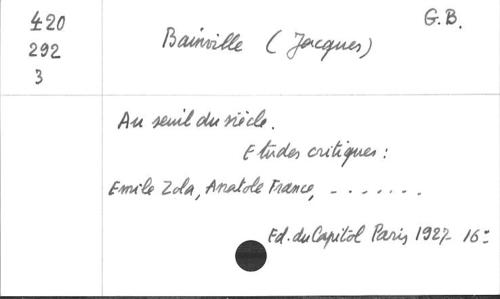 420
292
3
Bainville (Jacques)
G.B.
Au seuil du siècle.
Etudes critiques :
Emile Zola, Anatole France, - - - - - - -
Ed. du Capitol Paris 1927 16º